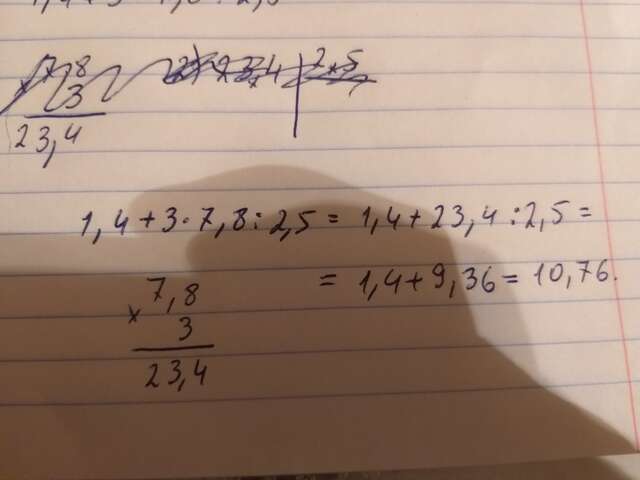 7,8
3
23,4
1,4 + 3 · 7,8 : 2,5 = 1,4 + 23,4 : 2,5 =
= 1,4 + 9,36 = 10,76.
7,8
× 3
23,4